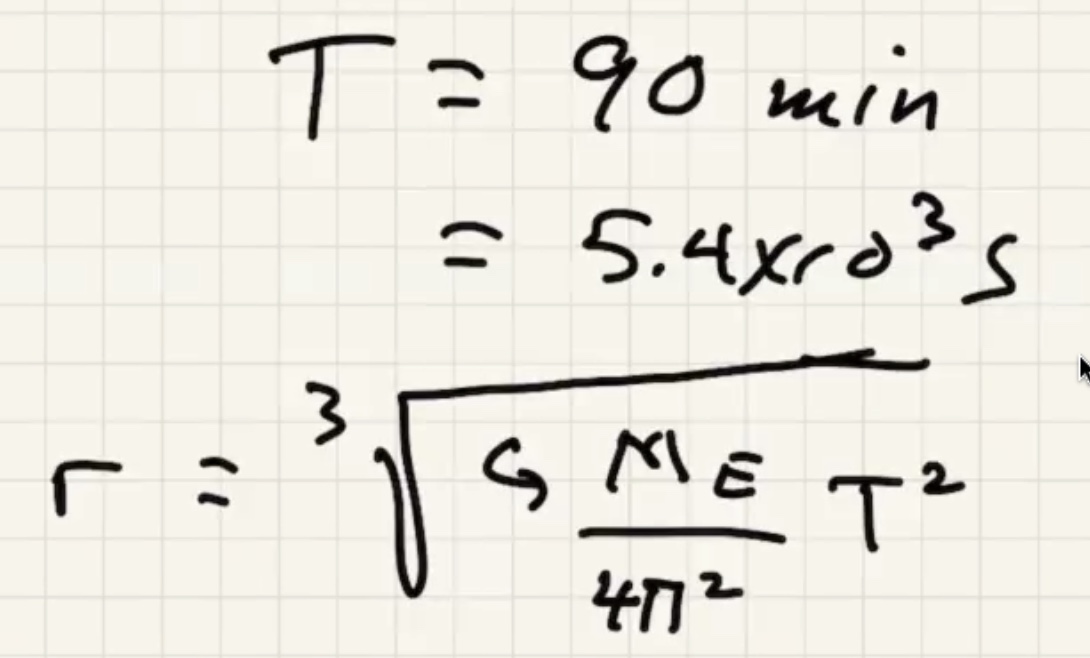 T = 90 min
= 5.4x10³ s
r = ³√(G M_E/4π² T²)